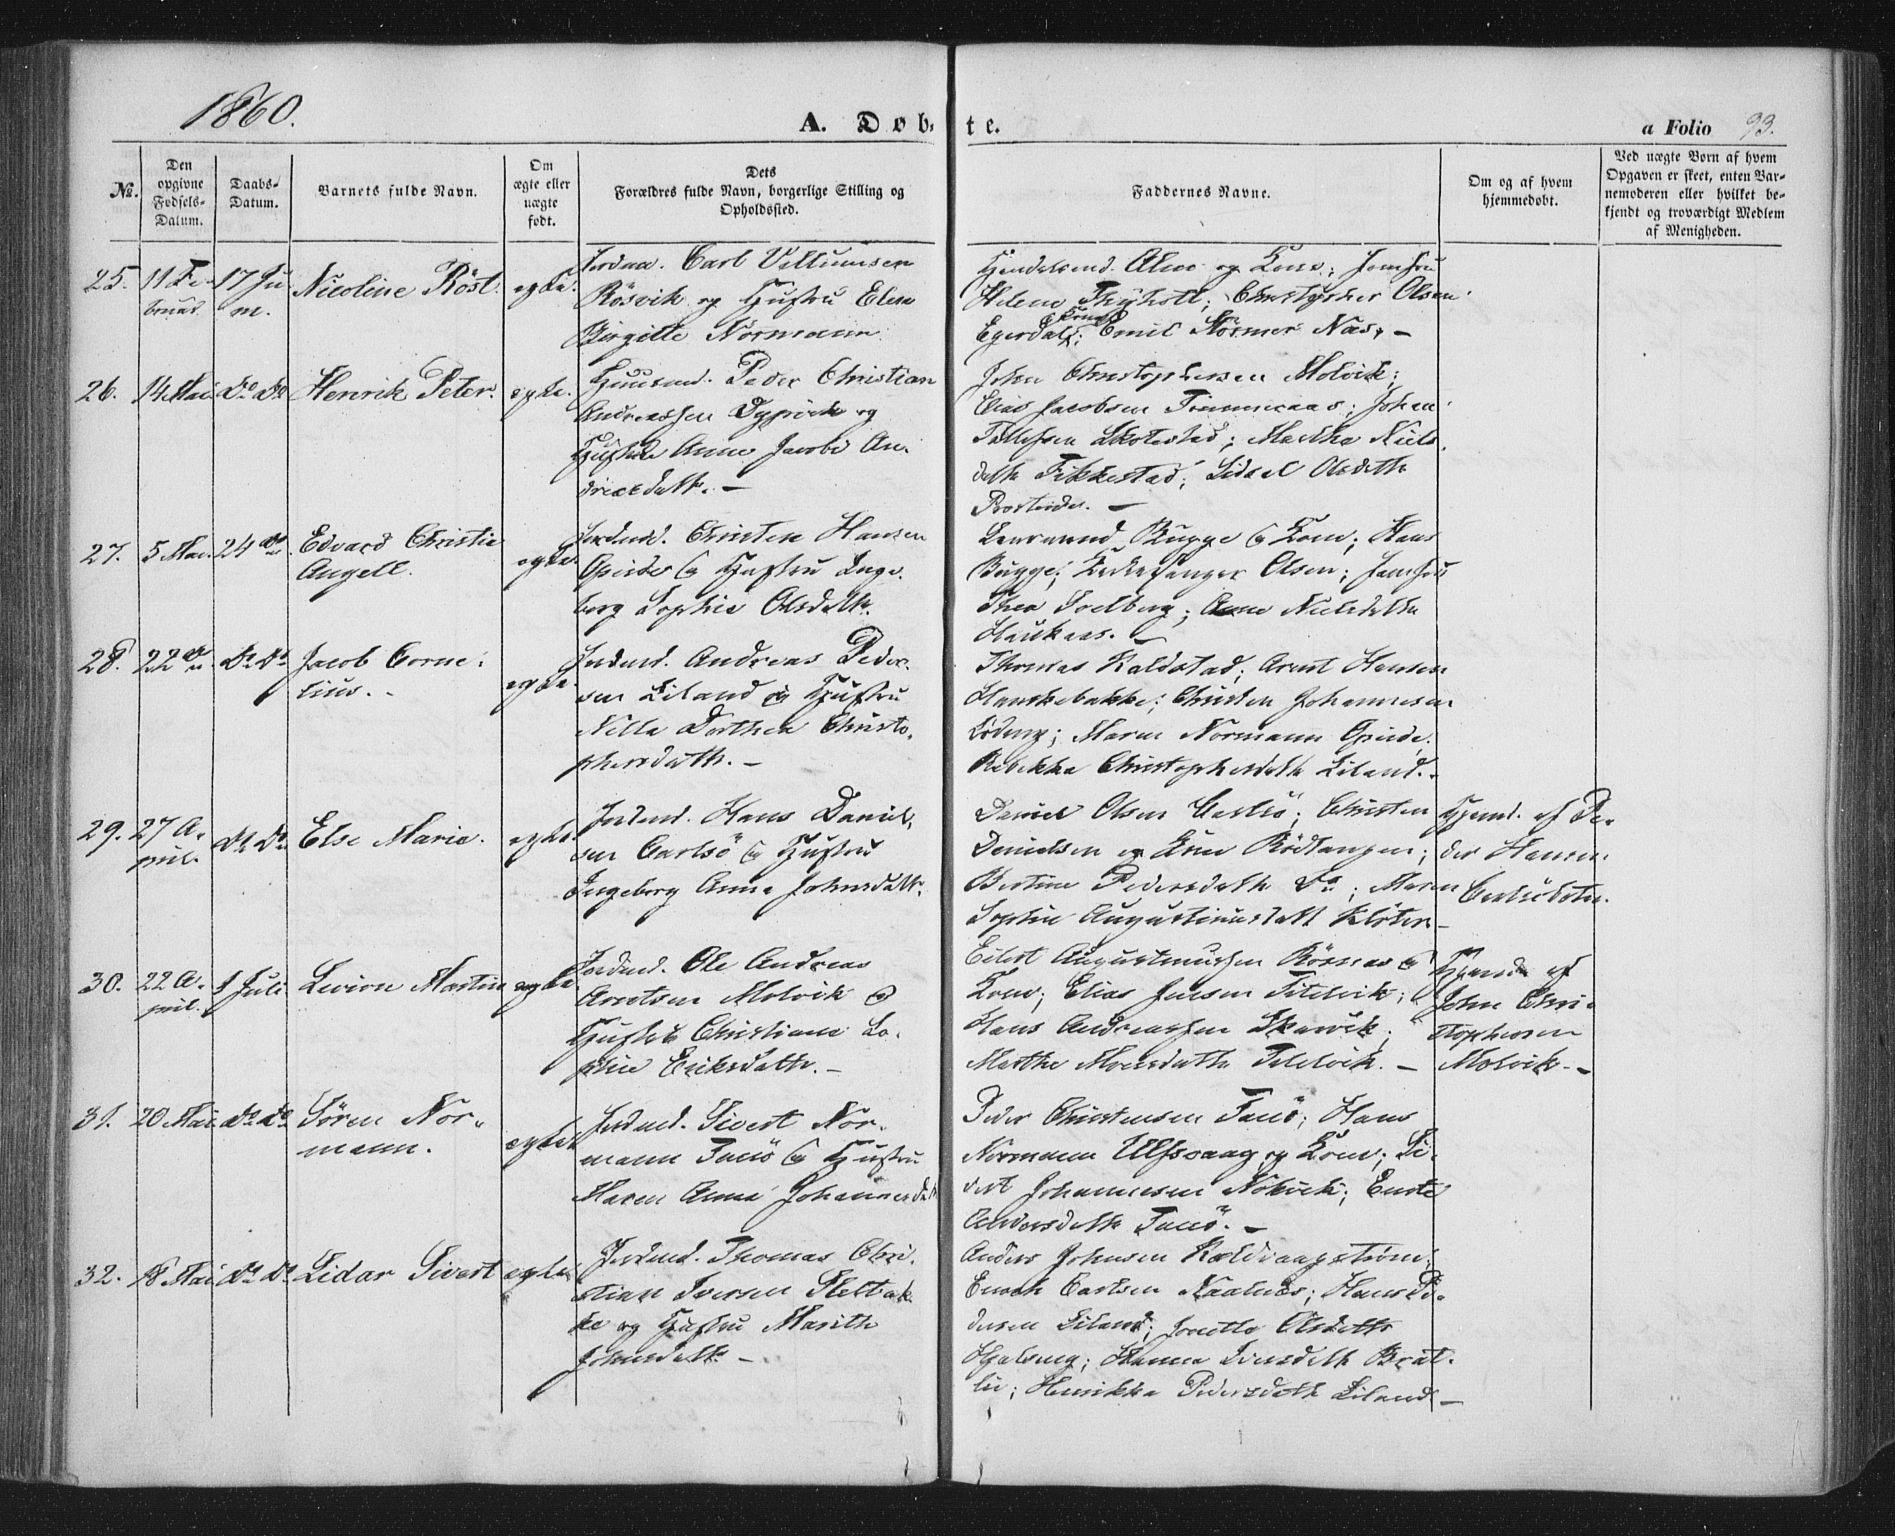 1860.
A. Døb-te.
a Folio 93.
№.
Den opgivne Fødsels-Datum.
Daabs-Datum.
Barnets fulde Navn.
Om ægte eller uægte født.
Dets Forældres fulde Navn, borgerlige Stilling og Opholdssted.
Faddernes Navne.
Om og af hvem hjemmedøbt.
Ved uægte Børn af hvem Opgaven er skeet, enten Barnemoderen eller hvilket bekjendt og troværdigt Medlem af Menigheden.
25. 11 Februar 17 Jun. Nicoline Röst. egte.
Carl Villumsen
Rösvik og Hustru Elen
Birgitte Normann.
Alm og Kone; Jomfru
Helene Christopher Olsen
Egerdal; Emil Næs, –
26. 14 Mai Do Do Henrik Peter. egte.
Huusmd. Peder Christian
Andreassen Dypvik og
Hustru Anne Jacobi An-
dreasdatt. –
John Christophersen Molvik;
Elias Jacobsen Johan
Tollefsen Martha Niels-
datt Fikkestad; Lidsel Olsdatt
27. 5 Mai 24 do Edvard Christia
Angell. egte.
Inderd. Christen Hansen
Gjerde og Hustru Inge-
borg Sophie Olsdatt.
Lensmand Bugge og Kone; Hans
Bugge; Kirkesanger Olsen; Jomfru
Thea Anne Nielsdatt
28. 22 do Do Do Jacob Corne-
lius. – egte.
Inderd. Andreas Peder-
sen Liland og Hustru
Nilla Dorthea Christo-
phersdatt. –
Thomas Kaldstad; Arent Hansen
Hanskebakke; Christen Johannesen
Löding; Maren Normann Gjerde.
Rebekka Christophersdatt Liland. –
29. 27 A-
pril. Do Do Else Maria. egte.
Inderd. Hans Daniel-
sen Carlsö og Hustru
Ingeborg Anna Johnsdatt.
Daniel Olsen Carlsö; Christen
Danielsen og Kone Rödtangen;
Bertine Pedersdatt Do; Maren
Sophie Augustinusdatt Kloster –
Hjemd. af Pe-
der Hansen
30. 22 A-
pril. 1 Juli Martin egte
Inderd. Ole Andreas
Arntsen Molvik og
Hustru Christiane So-
phie Eriksdatt. –
Eilert Augustinussen Rösnes og
Kone; Elias Jensen
Hans Andreassen Skarvik;
Marthe –
Hjemd. af
John Chri-
stophersen
Molvik. –
31. 20 Mai Do Do Sören Nor-
mann. egte
Inderd. Sivert Nor-
mann Tanö og Hustru
Maren Anna Johannesdatt
Peder Christensen Tanö; Hans
Normann Ulfsvaag og Kone; Si-
vert Johannesen
Andersdatt Tanö. –
32. 18 Mai Do Do Lidar Sivert egte
Inderd. Thomas Chri-
stian Iversen Sletbak-
ke og Hustru Marith
Johnsdatt. –
Anders Johnsen Kaldvaagström;
Enoch Carlsen Naalnes; Hans Pe-
dersen Liland; Jonette Olsdatt
Hanna Iversdatt
Henrikka Pedersdatt Liland –